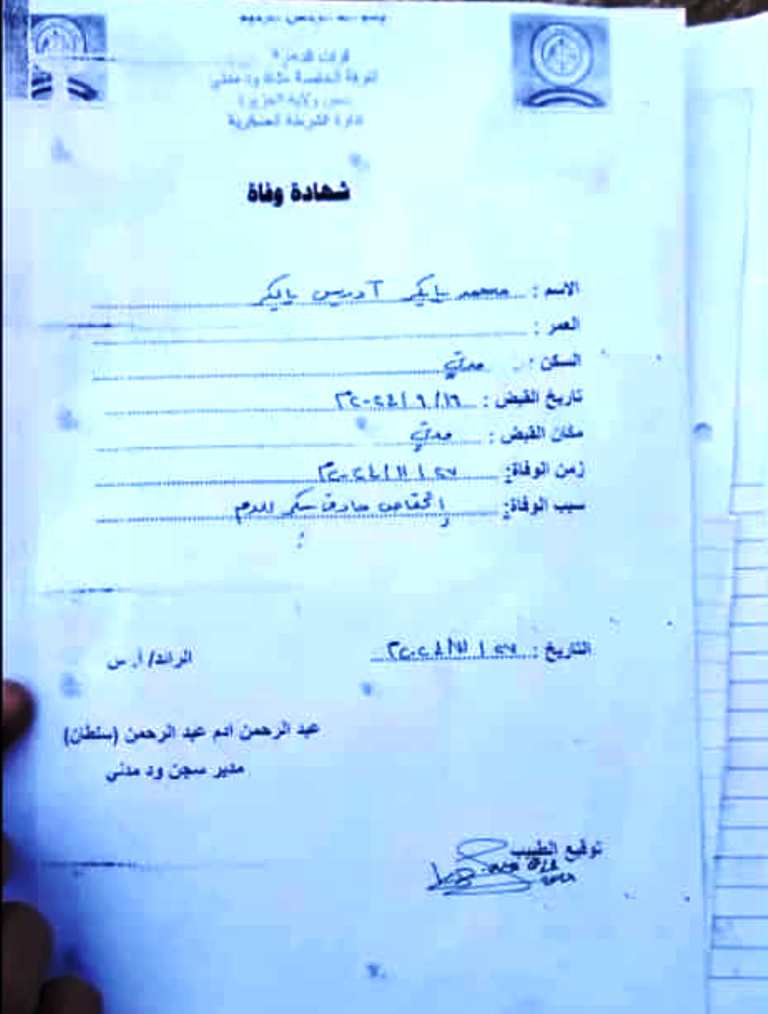 قوات الدعم السريع
الفرقة الخامسة مشاة ود مدني
ولاية الجزيرة
إدارة الشرطة العسكرية
شهادة وفاة
الاسم : محمد بابكر آدريس بابكر
العمر :
السكن : مدني
تاريخ القبض : ١٦ / ٩ / ٢٠٢٤م
مكان القبض : مدني
زمن الوفاة: ٢٧ / ١١ / ٢٠٢٤م
سبب الوفاة: إنخفاض حاد في سكر الدم
التاريخ : ٢٧ / ١١ / ٢٠٢٤م
الرائد/ أ. س
عبد الرحمن ادم عبد الرحمن (سلطان)
مدير سجن ود مدني
توقيع الطبيب